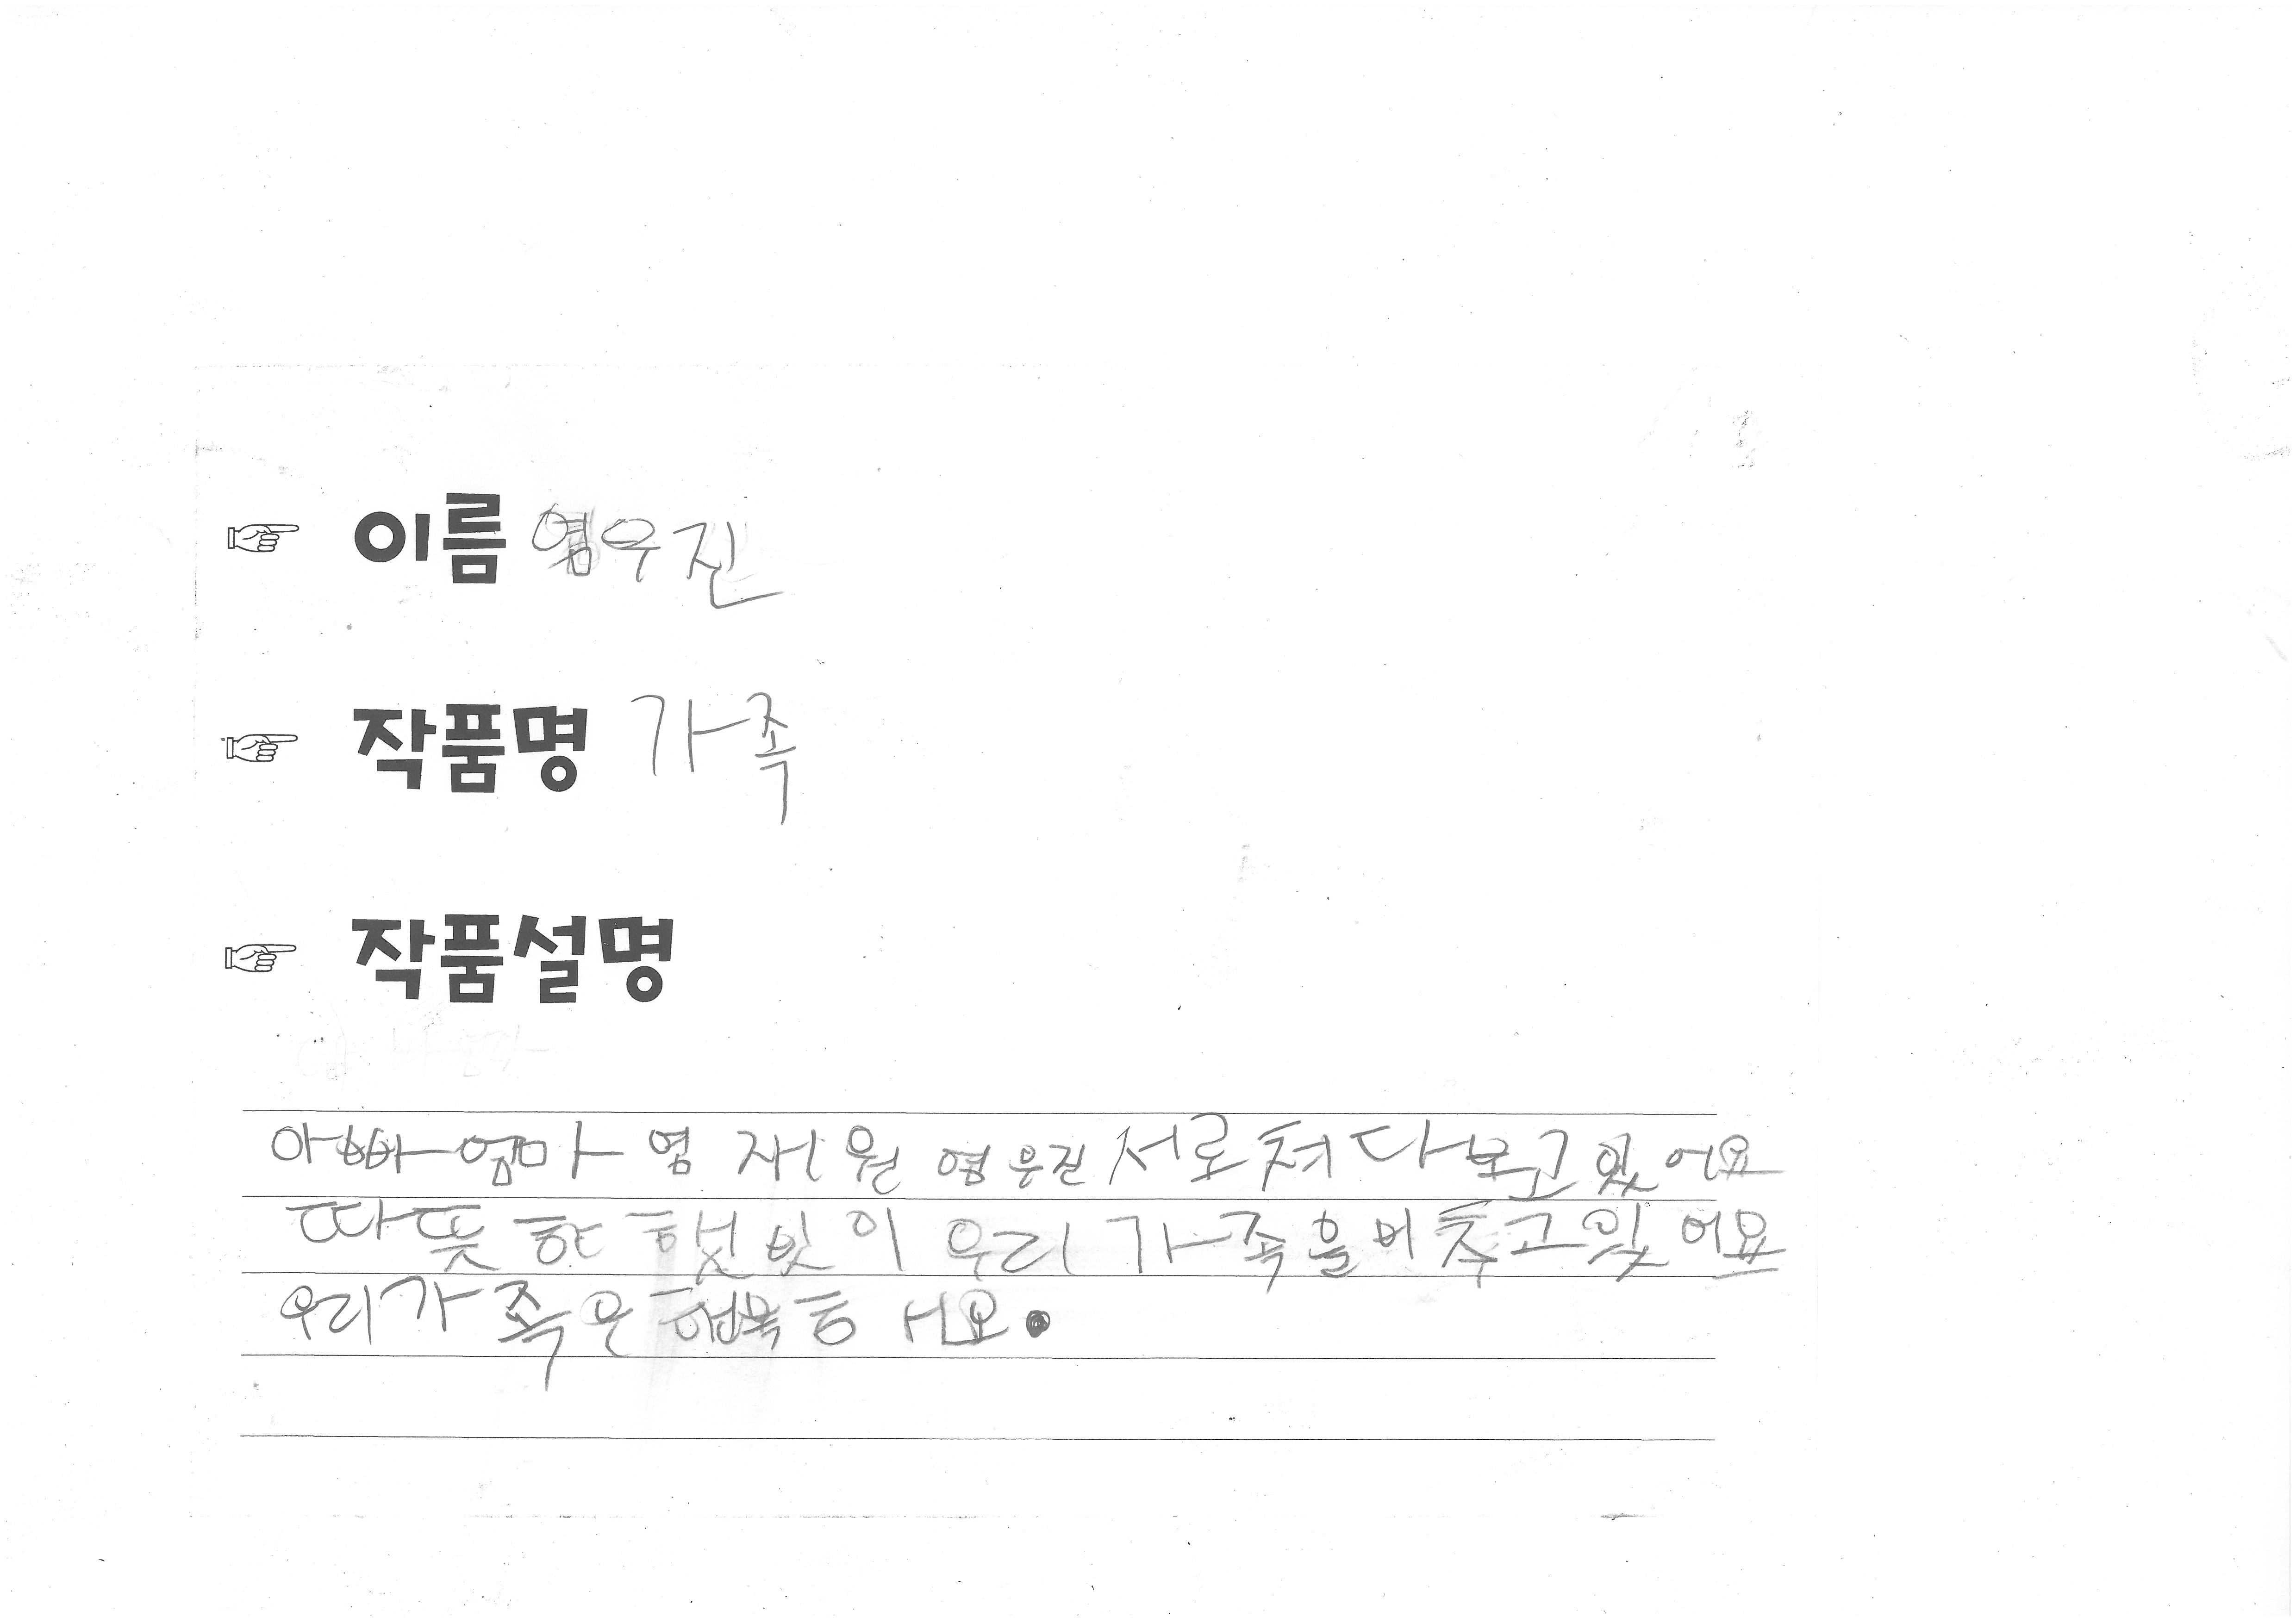 ☞ 이름 염우진
☞ 작품명 가족
☞ 작품설명
아빠 엄마 염재원 염우진 서로 쳐다보고 있어요
따뜻한 햇빛이 우리 가족을 비추고 있어요
우리 가족은 행복해요.